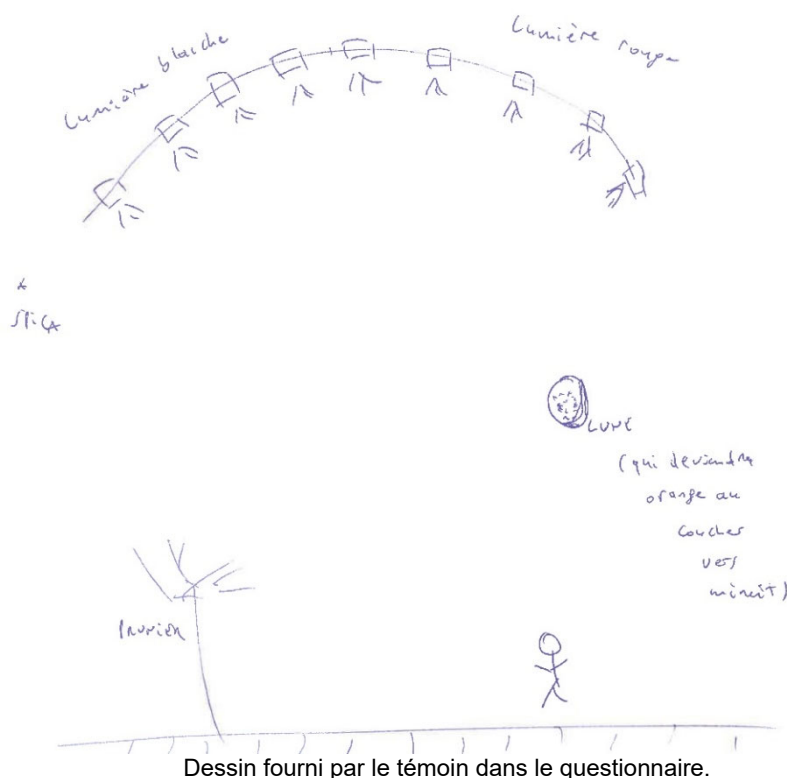 Lumière blanche
Lumière rouge
SPICA
LUNE
(qui deviendra
orange au
coucher
vers
minuit)
Prunier
Dessin fourni par le témoin dans le questionnaire.